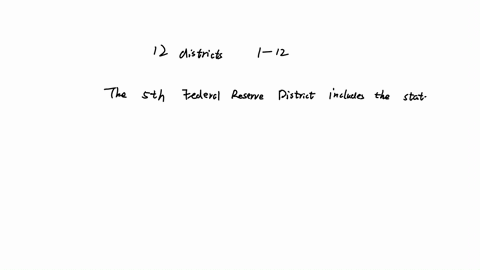 12 districts 1-12
The 5th Federal Reserve District includes the stat